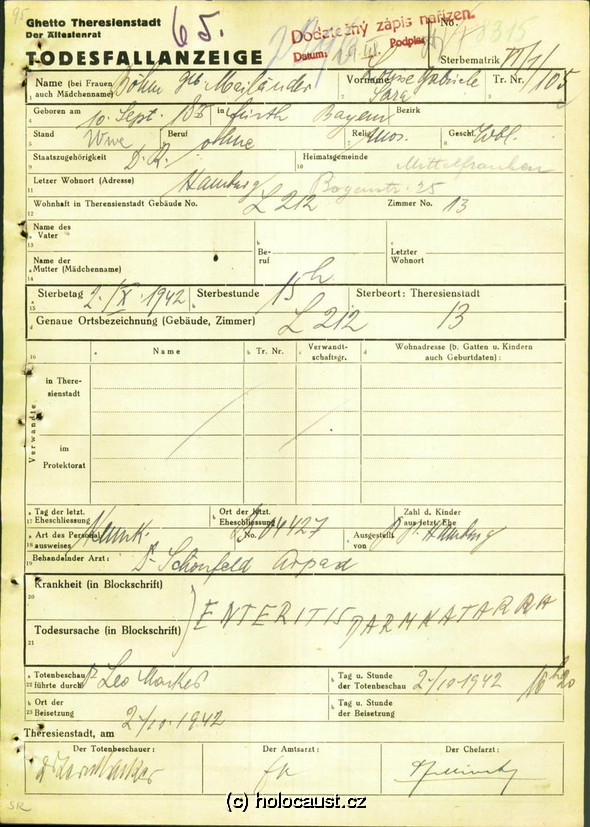 95
65.
Ghetto Theresienstadt
Der Ältestenrat
TODESFALLANZEIGE
Dodatečný zápis nařízen.
Datum: Podpis:
No.
8315
Sterbematrik
Name (bei Frauen auch Mädchenname) Böhm geb Mailänder
Vorname Gabriele
Sara
Tr. Nr. VII/1/105
Geboren am 10. Sept. in Fürth Bayern Bezirk
Stand Wwe Beruf ohne Relig. mos. Geschl. Wbl.
Staatszugehörigkeit D. R. Heimatsgemeinde Mittelfranken
Letzer Wohnort (Adresse) Hamburg Bogenstr. 25
Wohnhaft in Theresienstadt Gebäude No. L 212 Zimmer No. 13
Name des Vater
Beruf
Letzter Wohnort
Name der Mutter (Mädchenname)
Sterbetag 2./IX. 1942 Sterbestunde 15h Sterbeort: Theresienstadt
Genaue Ortsbezeichnung (Gebäude, Zimmer) L 212 13
Name Tr. Nr. Verwandtschaftsgr. Wohnadresse (b. Gatten u. Kindern auch Geburtdaten):
Verwandte
in Theresienstadt
im Protektorat
Tag der letzt. Eheschliessung
Ort der letzt. Eheschliessung
Zahl d. Kinder aus letzt. Ehe
Art des Personalausweises Kennk. No. B 04427 Ausgestellt von Hamburg
Behandelnder Arzt: Dr Schönfeld Arpad
Krankheit (in Blockschrift)
Todesursache (in Blockschrift)
ENTERITIS DARMKATARRH
Totenbeschau führte durch Dr Leo Markus Tag u. Stunde der Totenbeschau 2./10 1942 16h 20
Ort der Beisetzung Tag u. Stunde der Beisetzung
2./10. 1942
Theresienstadt, am
Der Totenbeschauer: Der Amtsarzt: Der Chefarzt:
SR
(c) holocaust.cz